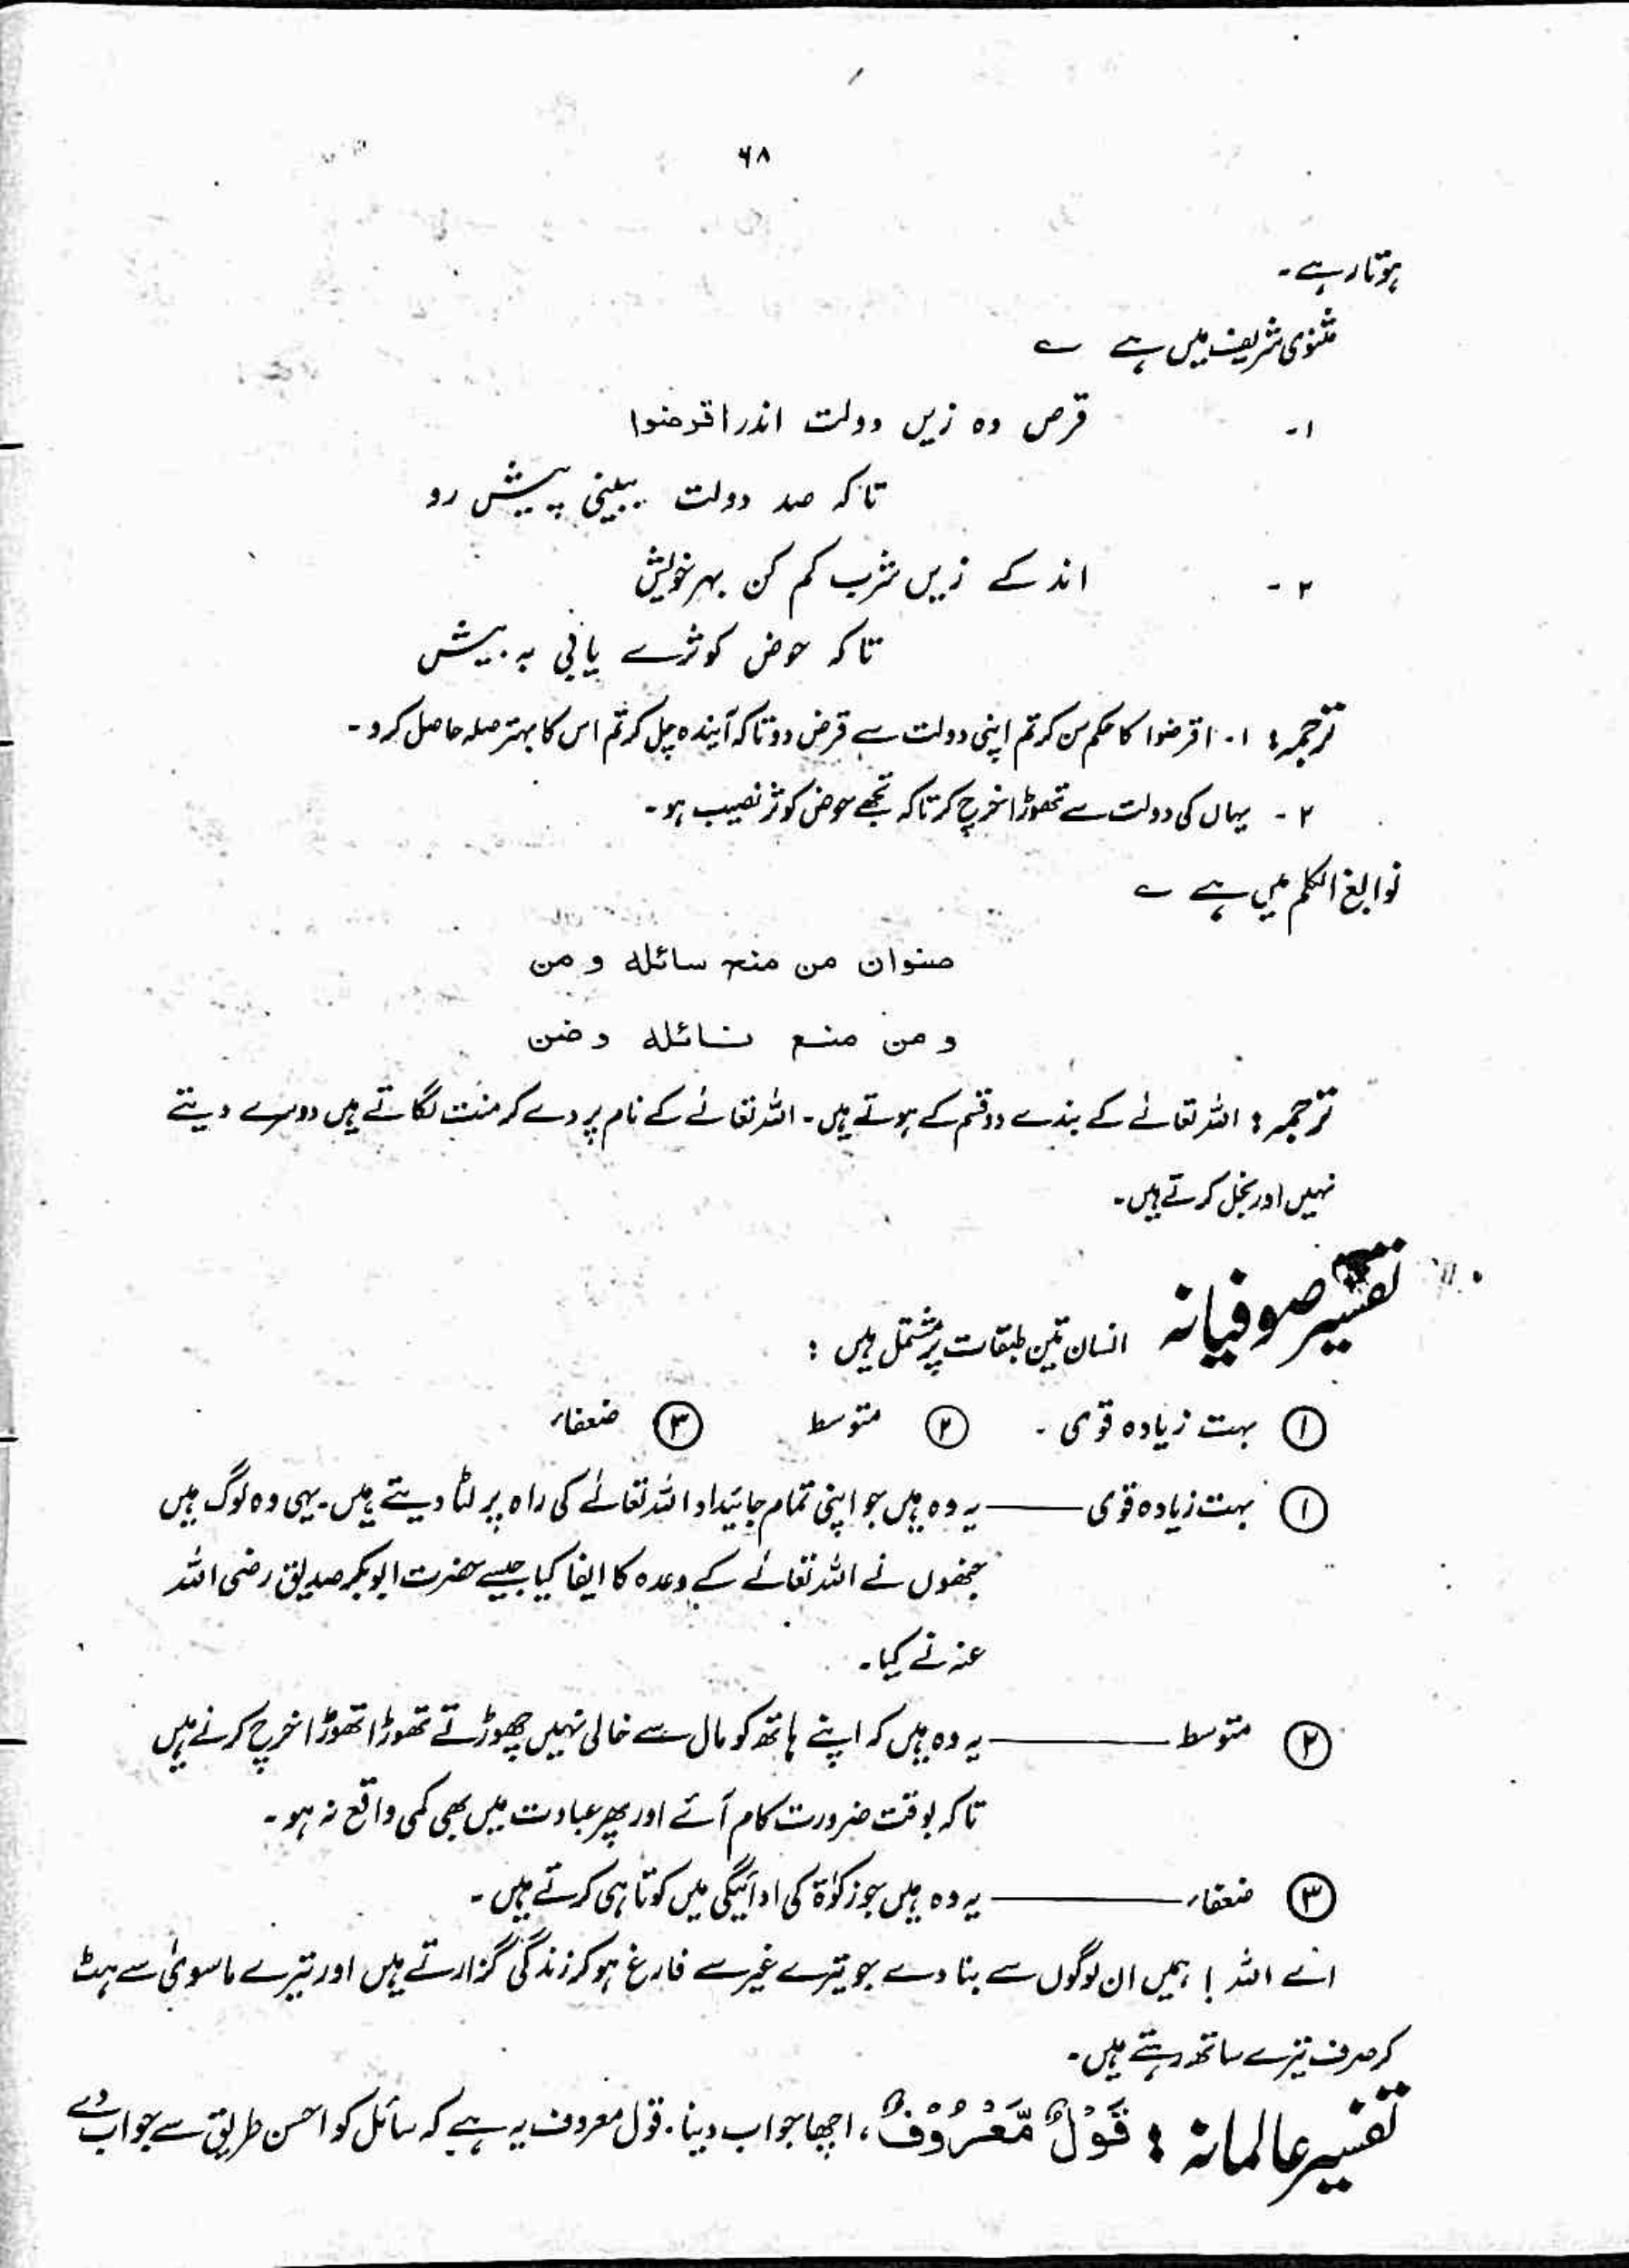 ۶۸
ہوتا رہے۔
مثنوی شریف میں ہے ؎
۱۔ قرض دہ زیں دولت اندر اقرضوا
تا کہ صد دولت ببینی پیش رو
۲۔ اندکے زیں شرب کم کن بہر خویش
تا کہ حوض کوثرے یابی بہ پیش
ترجمہ: ۱۔ اقرضوا کا حکم سن کر تم اپنی دولت سے قرض دو تاکہ آیندہ چل کر تم اس کا بہتر صلہ حاصل کرو۔
۲۔ یہاں کی دولت سے تھوڑا خرچ کر تاکہ تجھے حوض کوثر نصیب ہو۔
نوابغ الکلم میں ہے ؎
صنوان من منح سائلہ و من
و من منع نائلہ و ضن
ترجمہ: اللہ تعالےٰ کے بندے دو قسم کے ہوتے ہیں۔ اللہ تعالےٰ کے نام پر دے کر منت لگاتے ہیں دوسرے دیتے
نہیں اور بخل کرتے ہیں۔
تفسیر صوفیانہ انسان تین طبقات پر مشتمل ہیں :
① بہت زیادہ قوی۔ ② متوسط ③ ضعفاء
① بہت زیادہ قوی —— یہ وہ ہیں جو اپنی تمام جائیداد اللہ تعالےٰ کی راہ پر لٹا دیتے ہیں۔ یہی وہ لوگ ہیں
جنھوں نے اللہ تعالےٰ کے وعدہ کا ایفا کیا جیسے حضرت ابوبکر صدیق رضی اللہ
عنہ نے کیا۔
② متوسط —— یہ وہ ہیں کہ اپنے ہاتھ کو مال سے خالی نہیں چھوڑتے تھوڑا تھوڑا خرچ کرتے ہیں
تاکہ بوقت ضرورت کام آئے اور پھر عبادت میں بھی کمی واقع نہ ہو۔
③ ضعفاء —— یہ وہ ہیں جو زکوٰۃ کی ادائیگی میں کوتاہی کرتے ہیں۔
اے اللہ! ہمیں ان لوگوں سے بنا دے جو تیرے غیر سے فارغ ہو کر زندگی گزارتے ہیں اور تیرے ماسویٰ سے ہٹ
کر صرف تیرے ساتھ رہتے ہیں۔
تفسیر عالمانہ : قَوْلٌ مَّعْرُوْفٌ، اچھا جواب دینا۔ قول معروف یہ ہے کہ سائل کو احسن طریق سے جواب دے